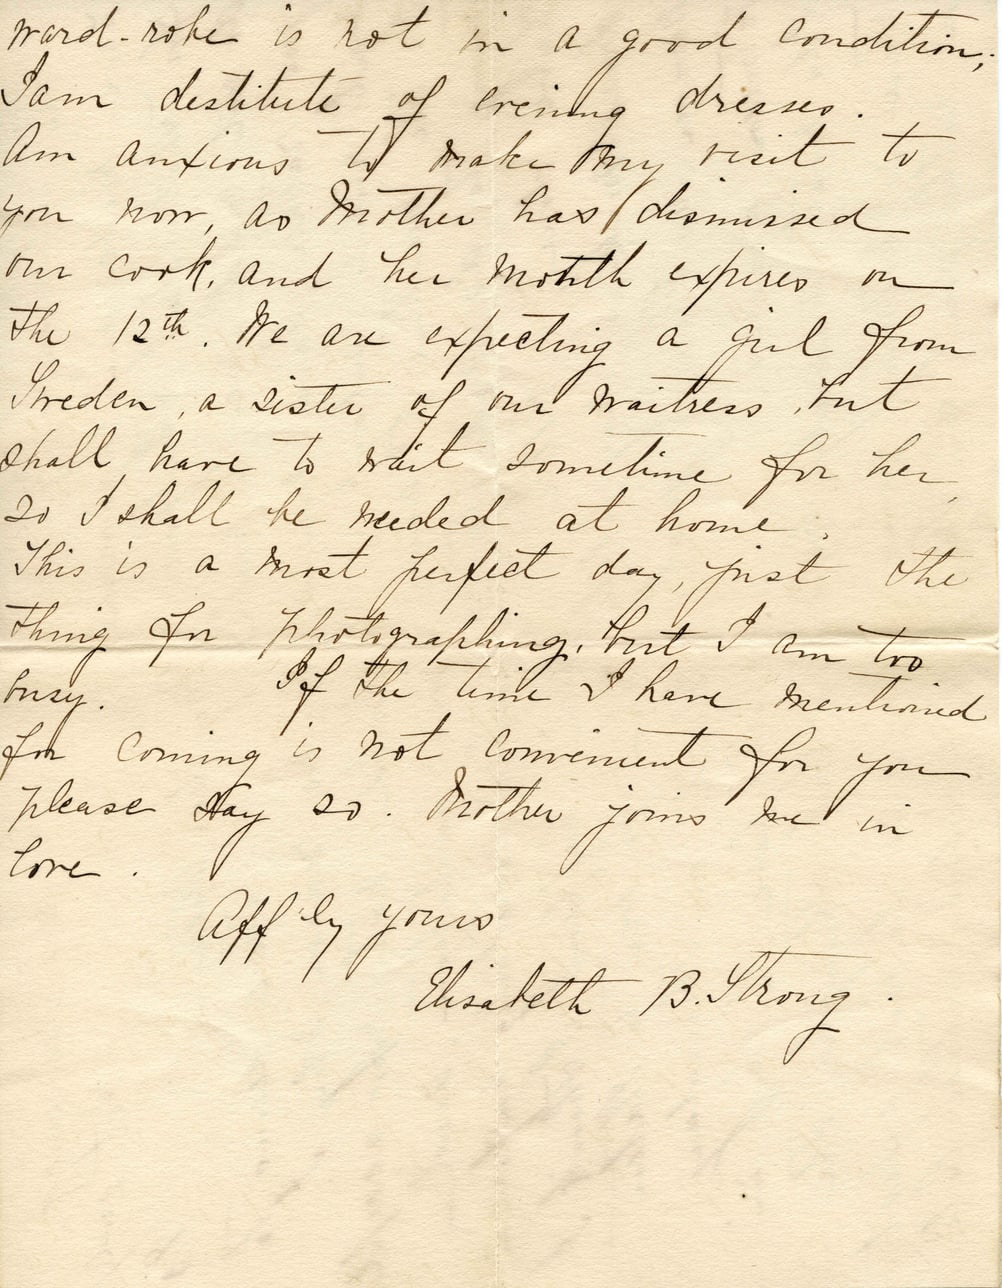 ward-robe is not in a good condition;
I am destitute of evening dresses.
Am anxious to make my visit to
you now, as Mother has dismissed
our cook, and her month expires on
the 12th. We are expecting a girl from
Sweden, a sister of our waitress, but
shall have to wait sometime for her,
so I shall be needed at home.
This is a most perfect day, just the
thing for photographing, but I am too
busy. If the time I have mentioned
for coming is not convenient for you
please say so. Mother joins me in
love.
Aff'ly yours
Elisabeth B. Strong.